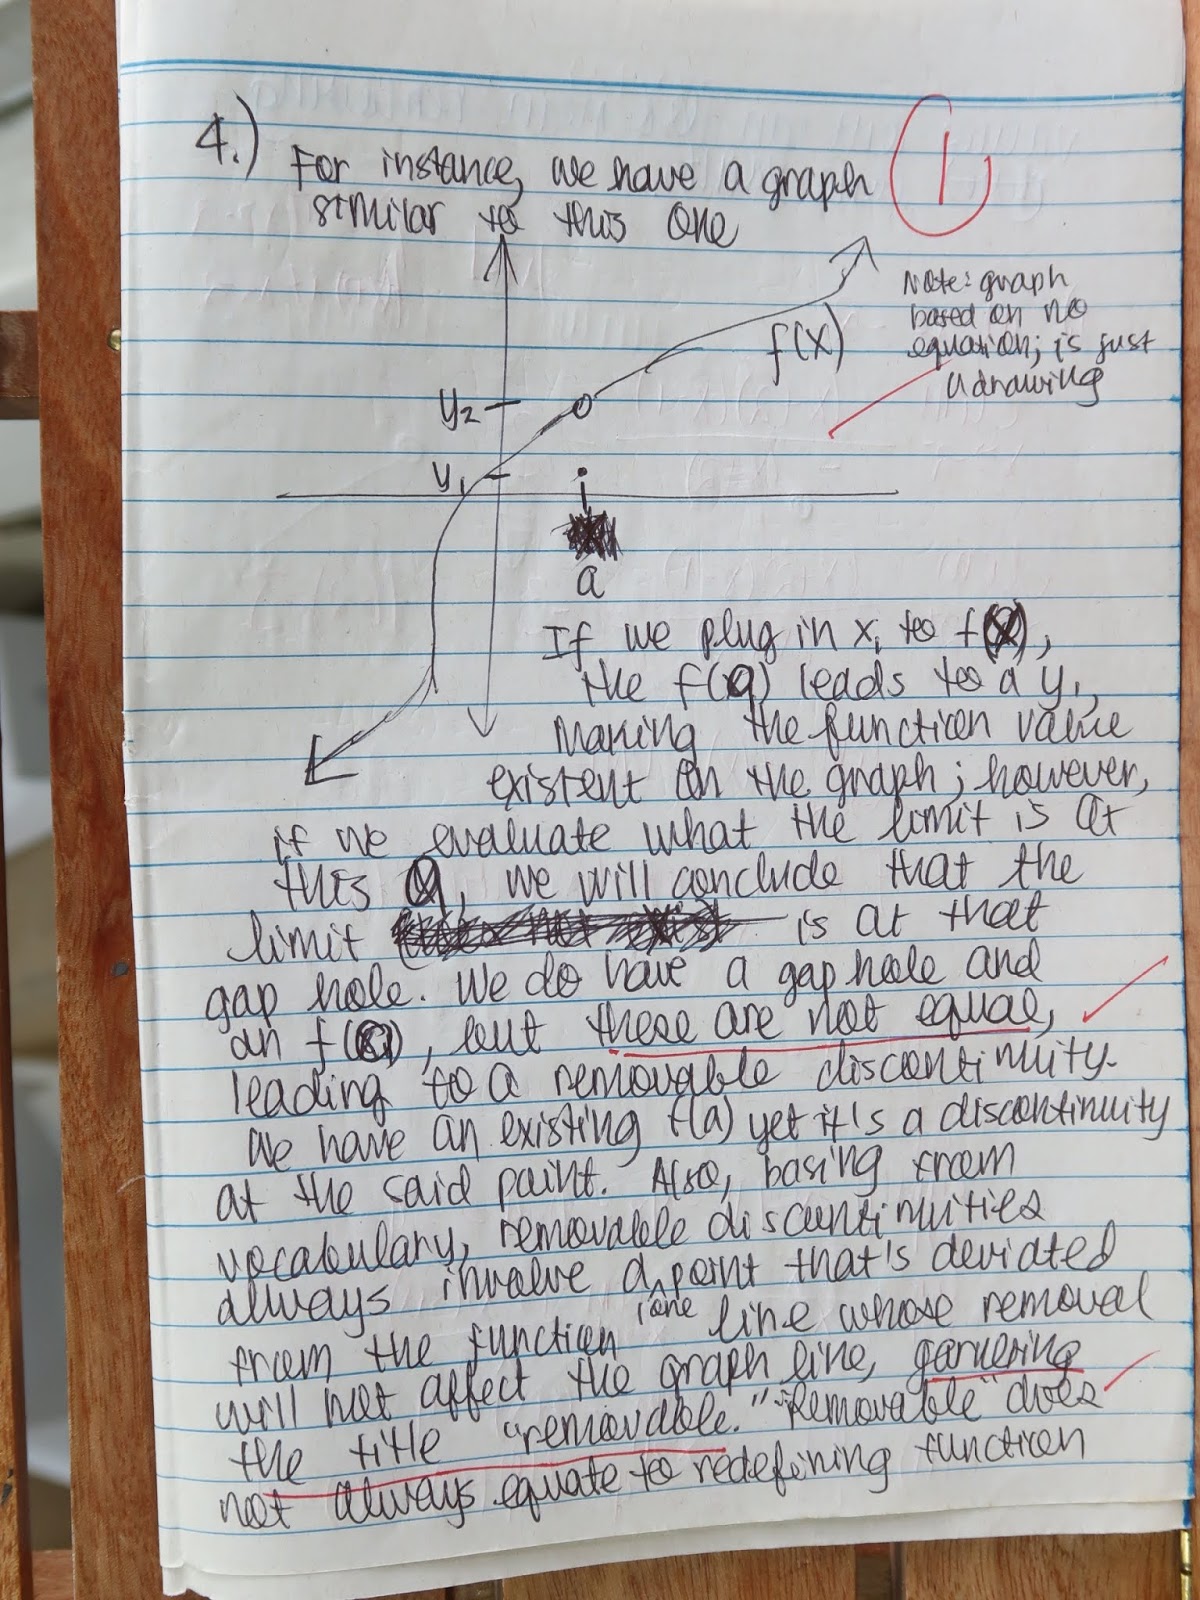 4.) For instance, we have a graph
similar to this one
1
Note: graph
based on no
equation; is just
a drawing
f(x)
y2
y1
a
If we plug in x, to f(x),
the f(a) leads to a y1,
making the function value
existent on the graph; however,
if we evaluate what the limit is at
this a, we will conclude that the
limit is at that
gap hole. We do have a gap hole and
an f(a), but these are not equal,
leading to a removable discontinuity.
We have an existing f(a) yet it's a discontinuity
at the said point. Also, basing from
vocabulary, removable discontinuities
always involve a point that's deviated
from the function line whose removal
will not affect the graph line, garnering
the title "removable." "Removable" does
not always equate to redefining function